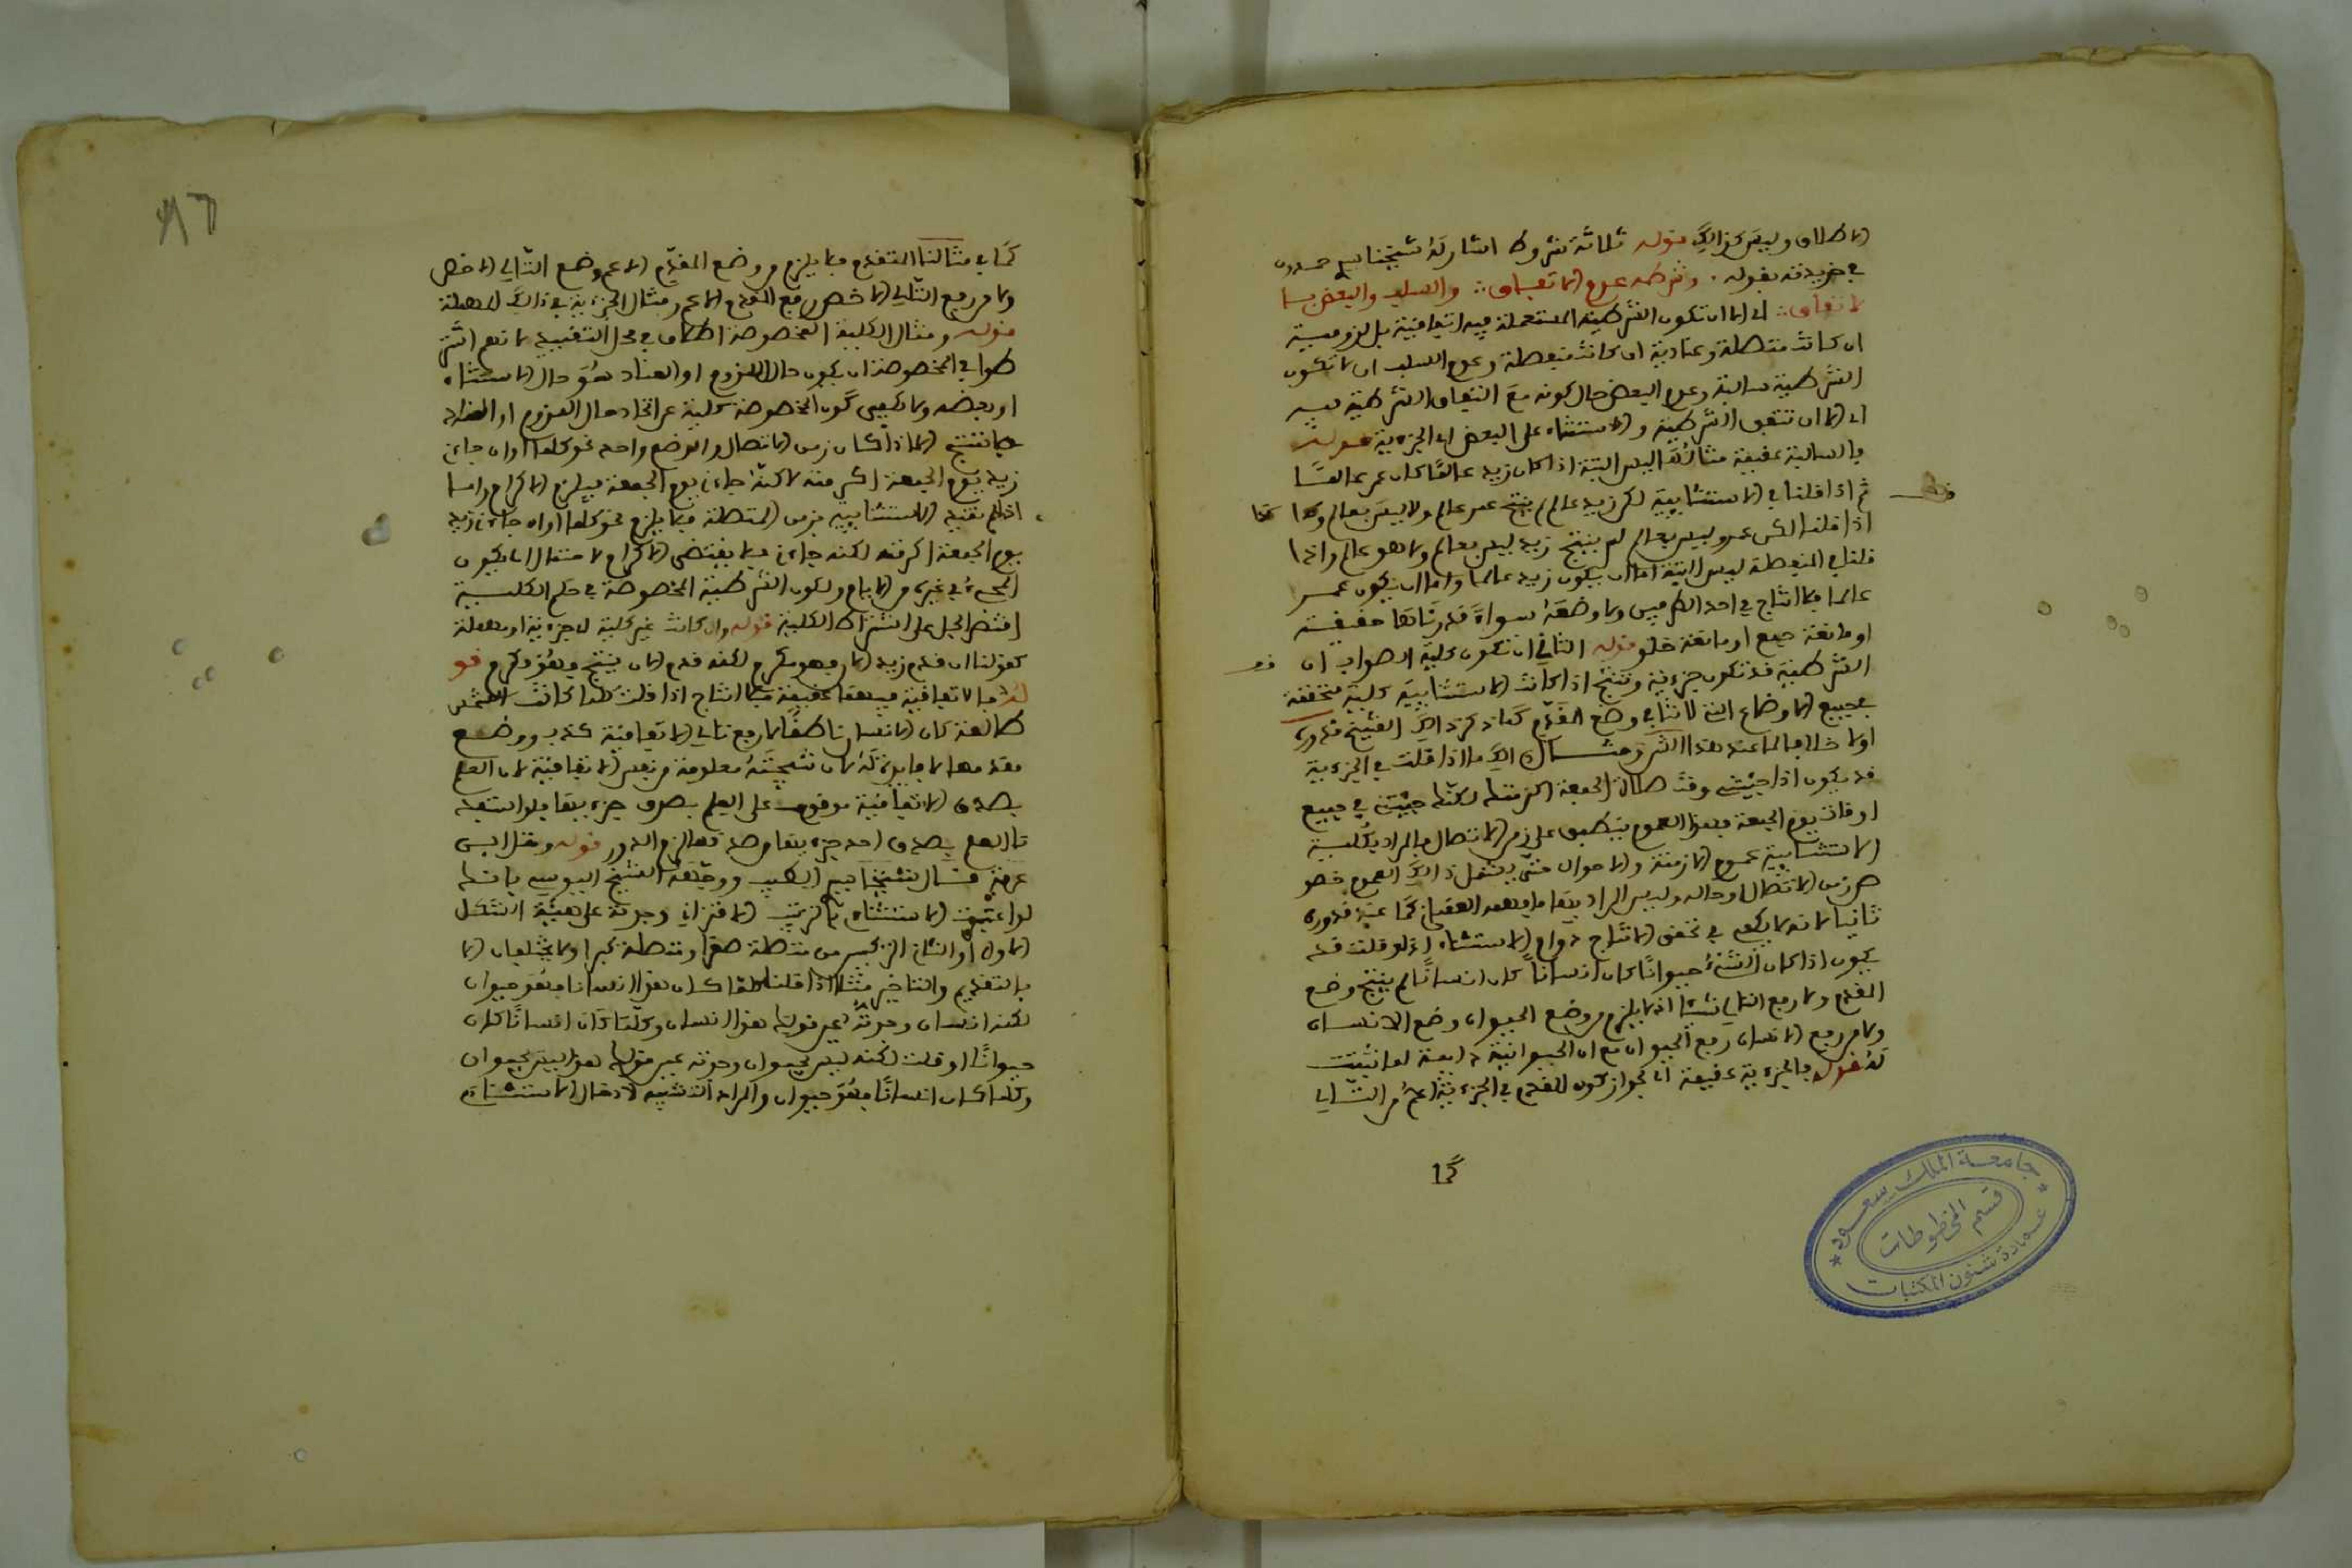 الاطلاق وليس كذالك قوله ثلاثة شروط اشار له شيخنا سيد حمدون
في خريدته بقوله وشرطه عدم الاتفاق والسلب والبعض
لا تفاق اي الا ان تكون الشرطية المستعملة فيه اتفاقية بل لزومية
ان كانت متصلة وعنادية ان كانت منفصلة وعدم السلب ان لا تكون
الشرطية سالبة وعدم البعض حال كونه مع اتفاق الشرطية فيه
اي الا ان تتفق الشرطية والاستثناء على البعض اي الجزءية قوله
فالسالبة عقيمة مثاله ليس البتة اذا كان زيد عالما كان عمر عالما
ثم اذا قلنا في الاستثنايية لكن زيد عالم لم ينتج عمر عالم ولا ليس بعالم وكذا
اذا قلنا لكن عمرو ليس بعالم لم ينتج زيد ليس بعالم ولا هو عالم واذا
قلنا في المنفصلة ليس البتة اما ان يكون زيد عالما واما ان يكون عمر
عالما فلا انتاج في احد الطرفين ولا وضعه سواء قدرناها حقيقية
او مانعة جمع او مانعة خلو قوله الثاني ان تكون كلية الصواب ان
الشرطية قد تكون جزءية وتنتج اذا كانت الاستثنايية كلية متحققة
بجميع الاوضاع التي لا تنافي وضع المقدم كما ذكر ذالك الشيخ قدوره
اولا خلافا لما عند هذا الشرح مثال ذالك ما اذا قلت في الجزءية
قد يكون اذا جيتني وقت صلاة الجمعة اكرمتك لكنك جيتني في جميع
اوقات يوم الجمعة فهذا العموم ينطبق على زمن الاتصال فالمراد بكلية
الاستثنايية عموم الازمنة والاحوال حتى يشمل ذالك العموم خصو
ص زمن الاتصال او حاله وليس المراد بها ما فهمه العقباني كما عند قدوره
ثانيا لانه لا يكفي في تحقق الانتاج دوام الاستثناء اذ لو قلت قد
يكون اذا كان الشيء حيوانا كان انسانا كان انسانا لم ينتج وضع
المقدم ولا رفع التالي شيئا اذ لا يلزم من وضع الحيوان وضع الانسان
ولا من رفع الانسان رفع الحيوان مع ان الحيوانية دايمة لما ثبتت
له قوله فالجزءية عقيمة اي لجواز كون المقدم في الجزءية اعم من التالي
كما
كما في مثالنا المتقدم فلا يلزم من وضع المقدم الاعم وضع التالي الاخص
ولا من رفع التالي الاخص رفع المقدم والاعم ومثال الجزءية في ذالك المهملة
قوله ومثال الكلية المخصوصة اطلاق في محل التقييد لانهم اشتر
طوا في المخصوصة ان يكون حال اللزوم او العناد هو حال الاستثناء
او بعضه ولا يكفي كون المخصوصة كلية عن اتحاد حال اللزوم او العناد
فلا تنتج الا اذا كان زمن الاتصال والوضع واحد نحو كلما اوان جاءني
زيد يوم الجمعة اكرمته لاكنه جاءني يوم الجمعة فيلزم الاكرام واما
اذا لم تقيد الاستثنايية بزمن المتصلة فلا يلزم نحو كلما اوان جاءني زيد
يوم الجمعة اكرمته لكنه جاءني فلا يقتضي الاكرام لاحتمال ان يكون
المجيء في غيره من الايام ولكون الشرطية المخصوصة في حكم الكلية
اقتصر الجل على اشتراط الكلية قوله وان كانت غير كلية لا جزءية او مهملة
كقولنا ان قدم زيد الان فهو مكرم لكنه قدم الان ينتج فهو مكرم قو
له فالاتفاقية فيهما عقيمة فلا انتاج اذا قلت كلما كانت الشمس
طالعة كان الانسان ناطقا لان رفع تالي الاتفاقية كذب ووضع
مقدمها لا فايدة له لان نتيجته معلومة من نفس الاتفاقية لان العلم
بصدق الاتفاقية موقوف على العلم بصدق جزءيها فلو استفد
نا العلم بصدق احد جزءيها من صدقها لزم الدور قوله ونقل ابن
عرفة قال شيخنا سيد الطيب ووجهه الشيخ اليوسي بانك
لو اعتبرت الاستثناء بالترتيب الاقتراني وجدته على هيئة الشكل
الاول او الثاني المركب من متصلة صغرا ومتصلة كبرا ولا يختلفان الا
بالتقديم والتاخير مثلا اذا قلنا كلما كان هذا الانسانا فهو حيوان
لكنه انسان وجدته عين قولك هذا انسان وكلما كان انسانا كان
حيوانا او قلت لكنه ليس بحيوان وجدته عين قولك هذا ليس بحيوان
وكلما كان انسانا فهو حيوان والمراد التشبيه لادخال الاستثناء
جامعة الملك سعود
قسم المخطوطات
عمادة شئون المكتبات